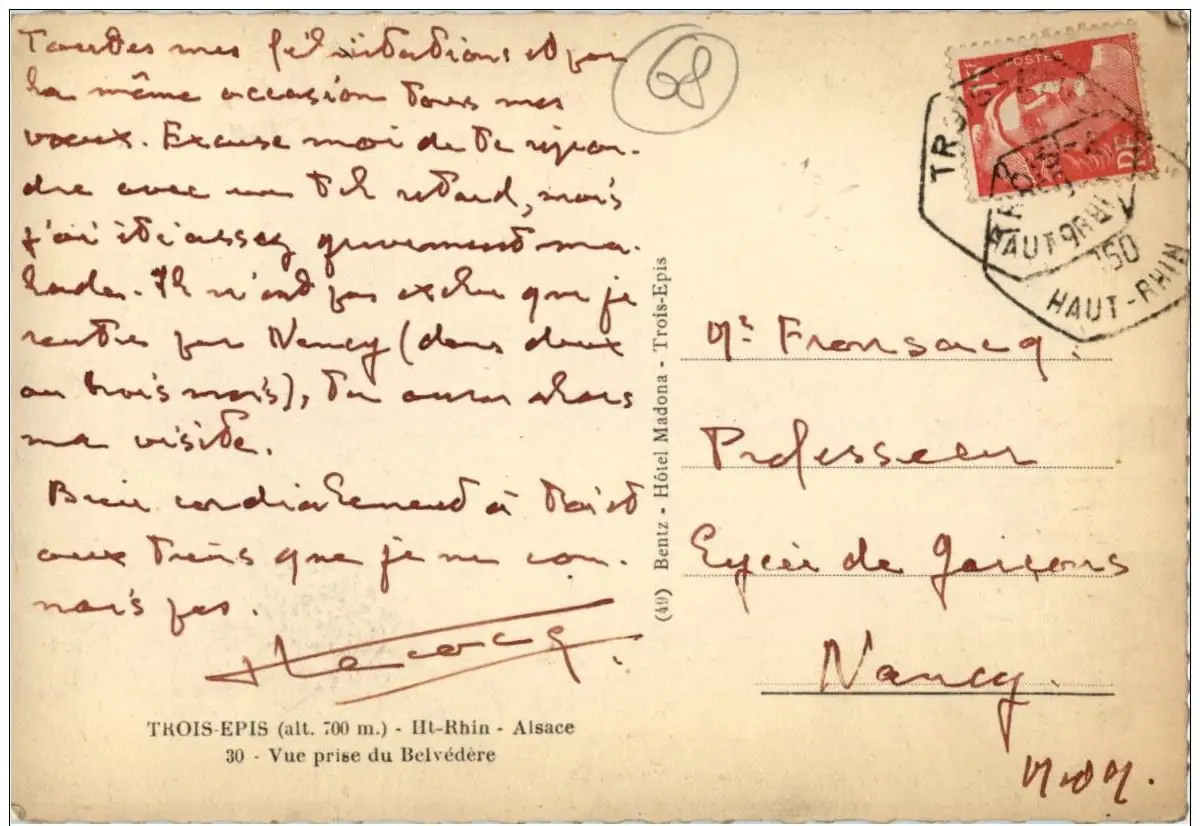 Toutes mes félicitations et par
la même occasion tous mes
vœux. Excuse moi de te répon-
dre avec un tel retard, mais
j'ai été assez gravement ma-
lade. Il n'est pas exclu que je
rentre par Nancy (dans deux
ou trois mois), tu auras alors
ma visite.
Bien cordialement à toi et
aux tiens que je ne con-
nais pas.
68
TROIS-EPIS (alt. 700 m.) - Ht-Rhin - Alsace
30 - Vue prise du Belvédère
(49) Bentz - Hôtel Madona - Trois-Epis
POSTES
HAUT-RHIN
HAUT-RHIN
Mr Fronsacq
Professeur
Lycée de Garçons
Nancy
M-et-M.